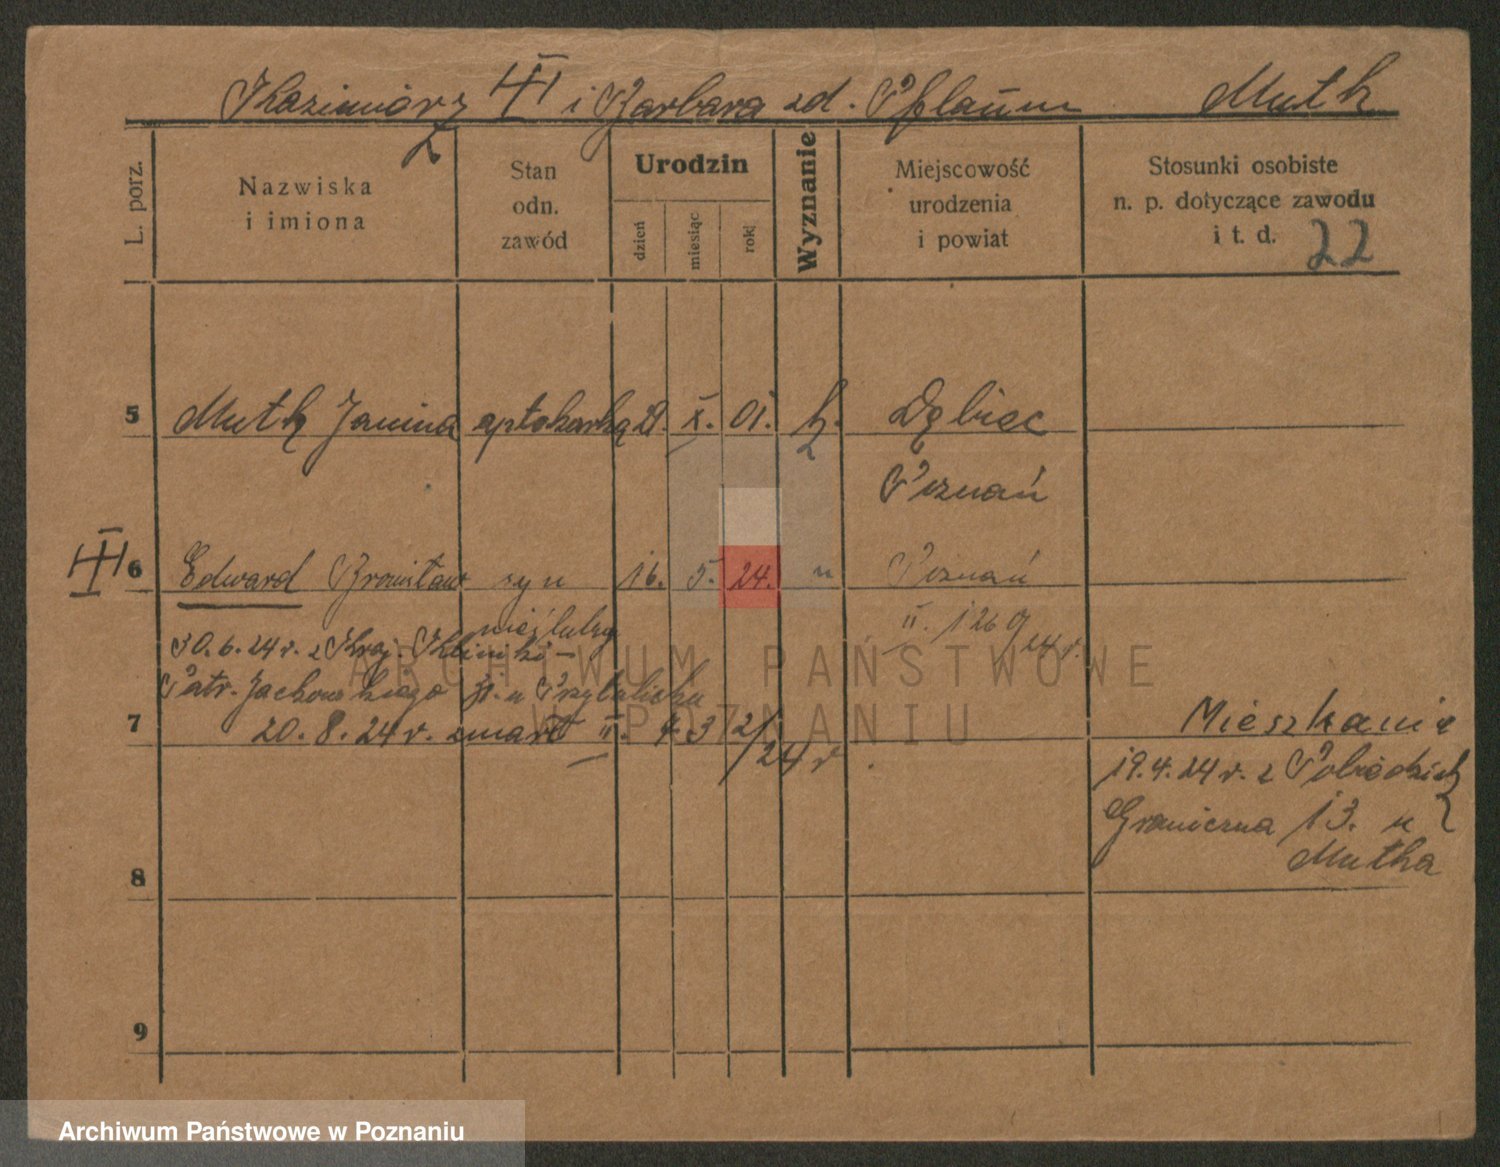 Kazimiórz III i Barbara zd. Pflaum Muth
L. porz.
Nazwiska
i imiona
Stan
odn.
zawód
Urodzin
dzień
miesiąc
rok
Wyznanie
Miejscowość
urodzenia
i powiat
Stosunki osobiste
n. p. dotyczące zawodu
i t. d. 22
5 Muth Janina aptekarka X. 01. k. Dębiec
Poznań
III 6 Edward Bronisław syn 16. 5. 24. " Poznań
nieślubny II. 126 9/24 r.
30.6.24 r. z Kraj. Kliniki -
Patr. Jackowskiego u Przybylska
7 20.8.24 r. zmarł II. 2/24 r.
Mieszkanie
19.4.24 r. z
Graniczna 13. u
Mutha
8
9
ARCHIWUM PAŃSTWOWE
W POZNANIU
Archiwum Państwowe w Poznaniu